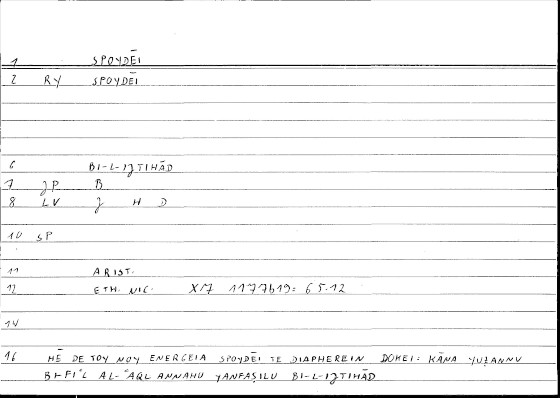 1 SPOYDĒI
2 RY SPOYDĒI
6 BI-L-IJTIHĀD
7 JP B
8 LV J H D
10 SP
11 ARIST.
12 ETH. NIC. X 7 1177b19: 65.12
14
16 HĒ DE TOY NOY ENERGEIA SPOYDĒI TE DIAPHEREIN DOKEI: KĀNA YUẒANNU
BI-FIʿL AL-ʿAQL ANNAHU YANFAṢILU BI-L-IJTIHĀD